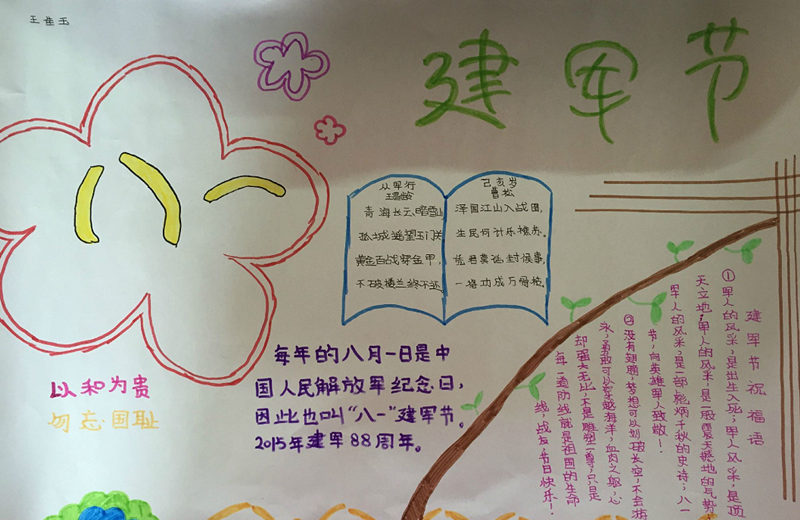 王佳玉
建军节
八一
从军行
王昌龄
青海长云暗雪山
孤城遥望玉门关
黄金百战穿金甲，
不破楼兰终不还
己亥岁
曹松
泽国江山入战图，
生民何计乐樵苏。
凭君莫话封侯事，
一将功成万骨枯。
以和为贵
勿忘·国耻
每年的八月一日是中
国人民解放军纪念日，
因此也叫“八一”建军节。
2015年建军88周年。
建军节祝福语
①军人的风采，是出生入死；军人风采，是顶
天立地；军人的风采，是一股震天撼地的气势
军人的风采，是一部彪炳千秋的史诗，八一
节，向英雄军人致敬！
②没有翅膀，梦想可以划破长空，不会游
泳，勇敢可以穿越海洋，血肉之躯，心
却强大无比，不是雕塑一尊，只是
每一道防线就是祖国的生命
线，战友，节日快乐！